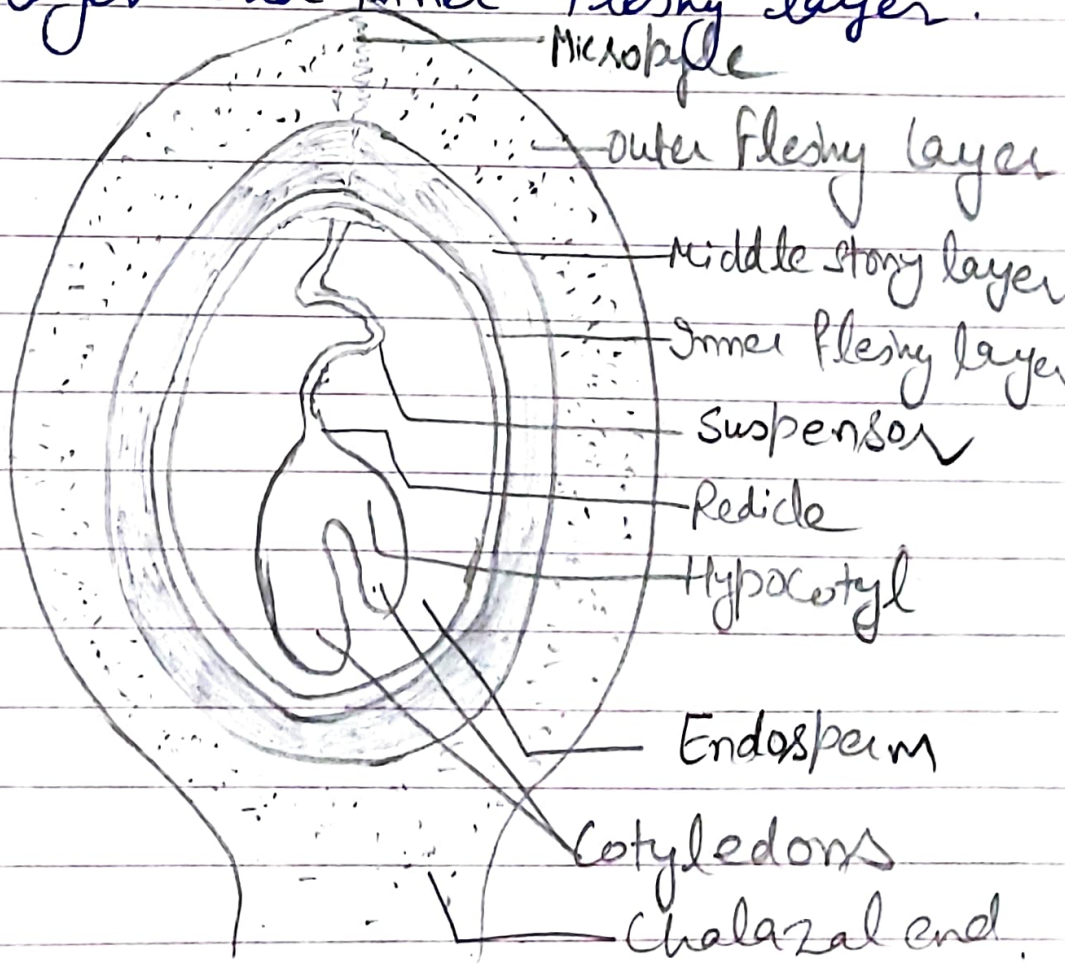 layer and inner fleshy layer.
Micropyle
outer fleshy layer
Middle stony layer
Inner fleshy layer
Suspensor
Redicle
Hypocotyl
Endosperm
Cotyledons
Chalazal end.